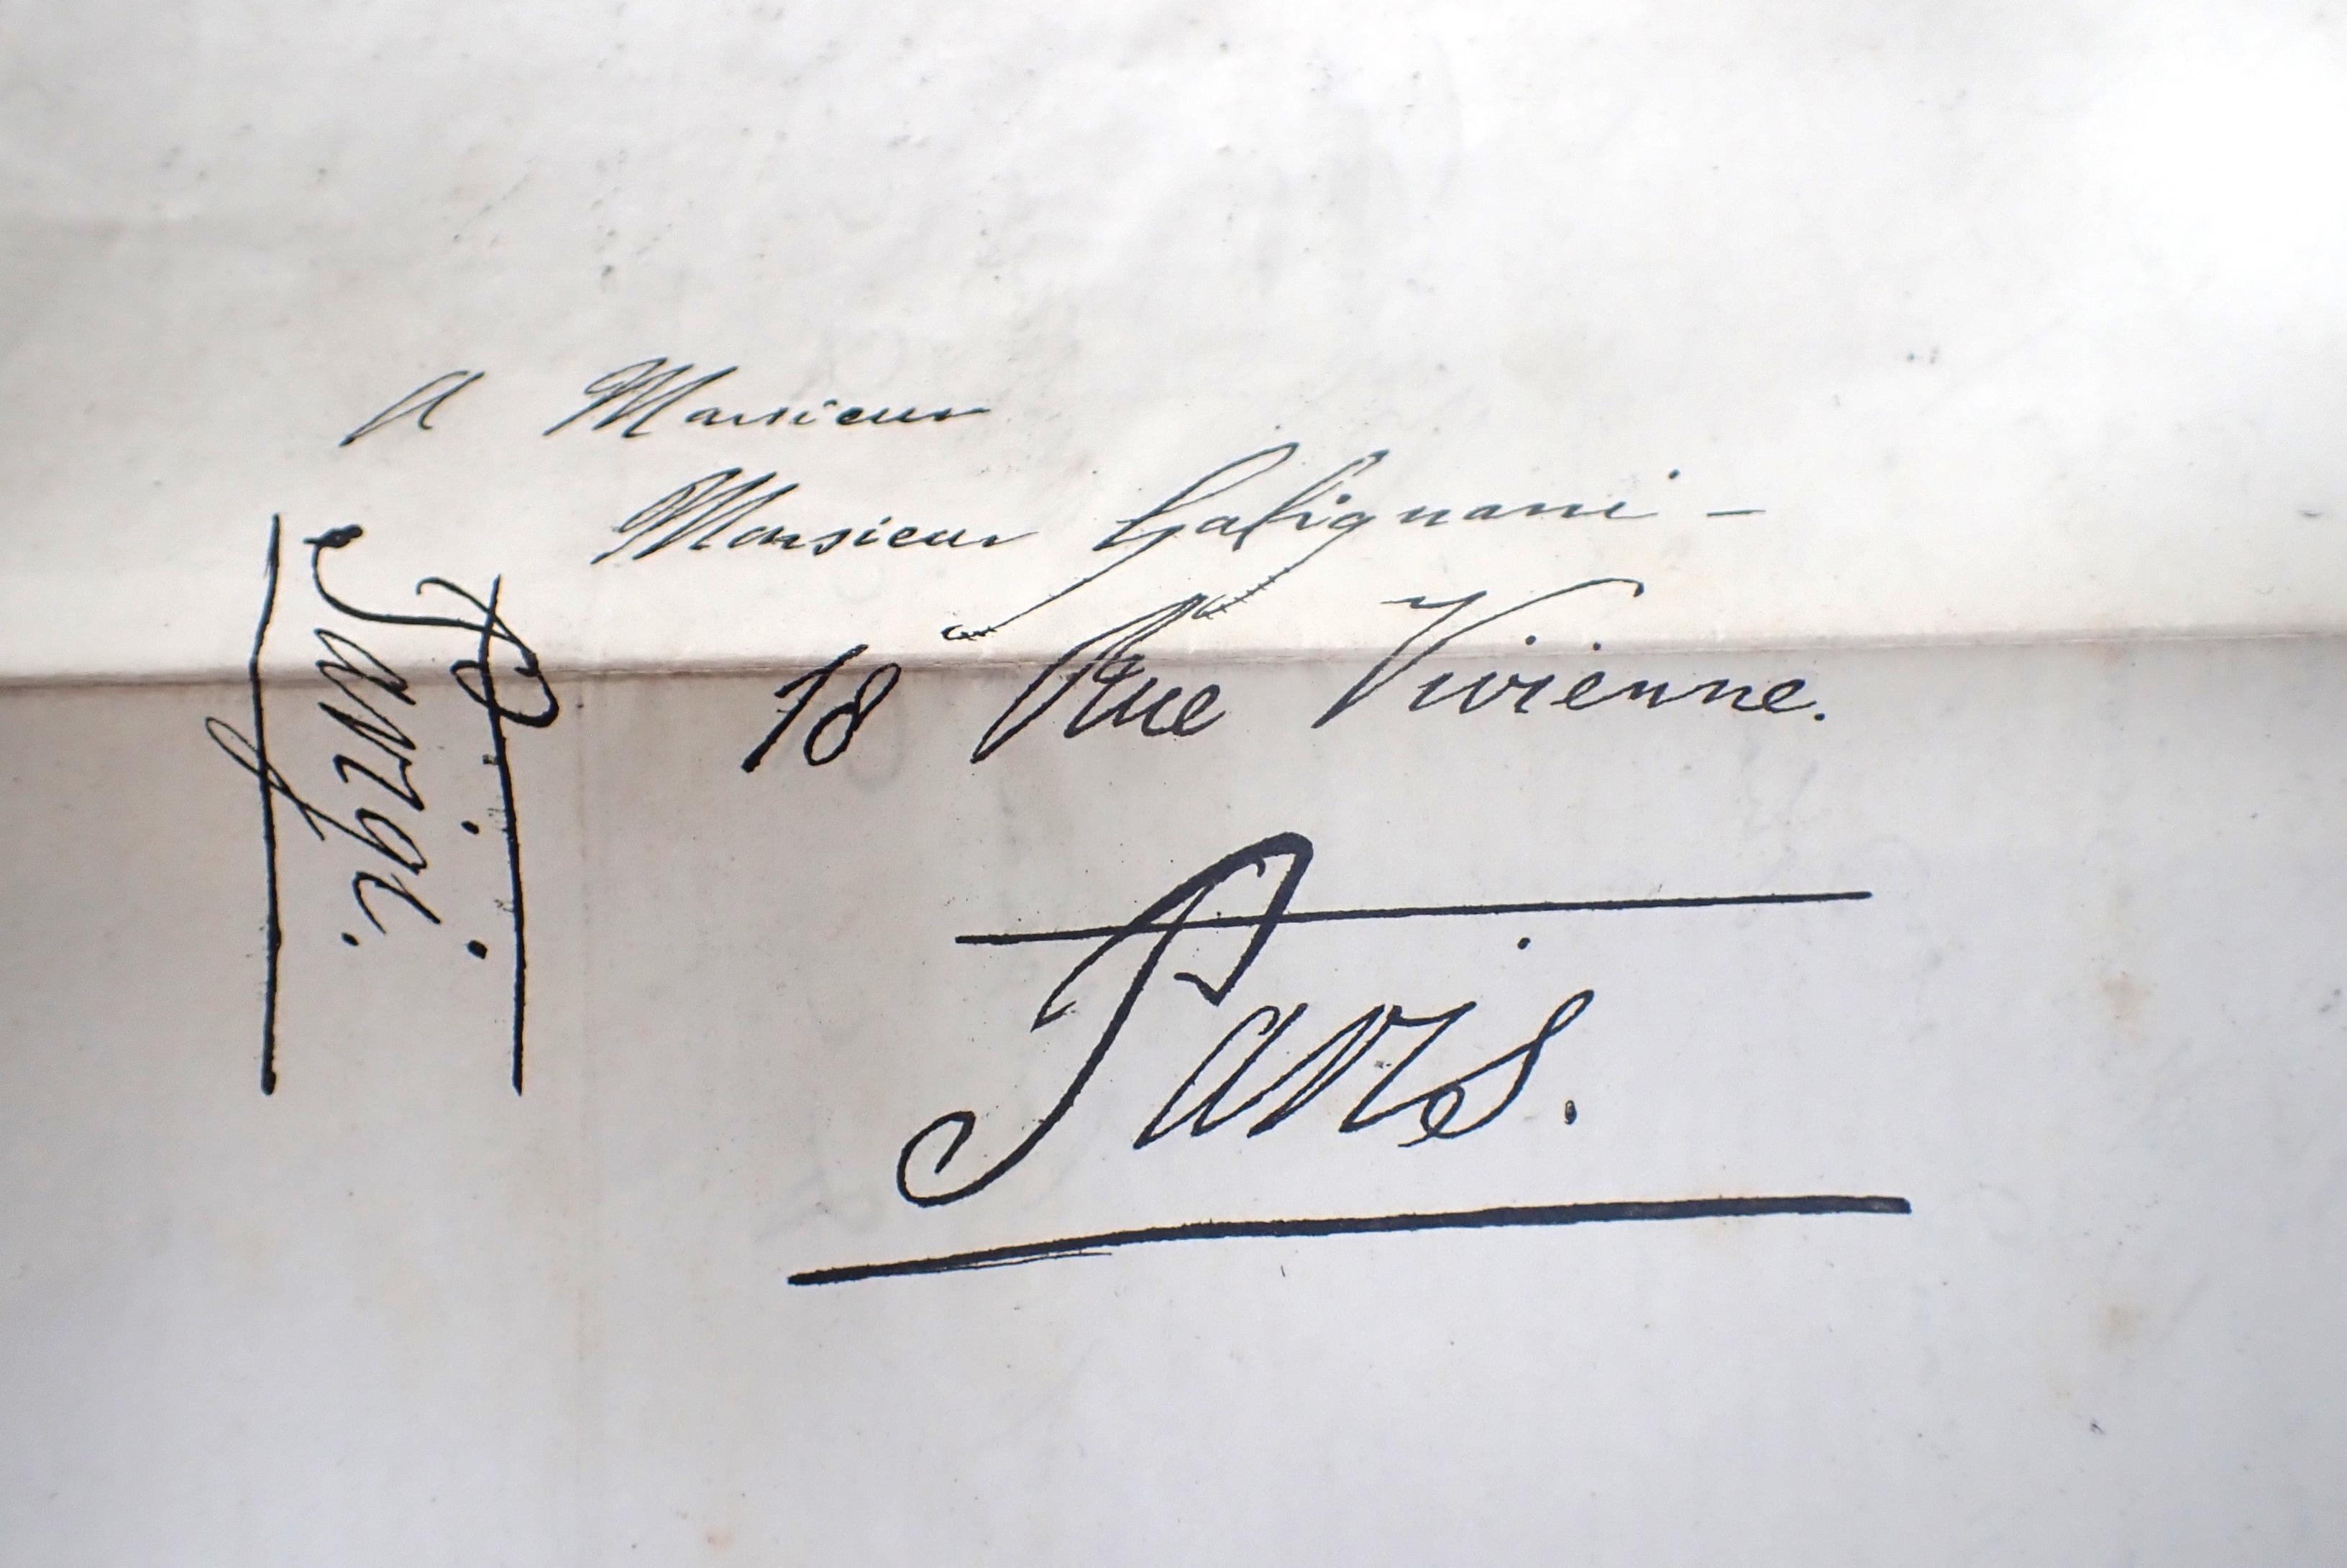 A Monsieur
Monsieur Galignani -
18 Rue Vivienne.
Paris.
Parigi.